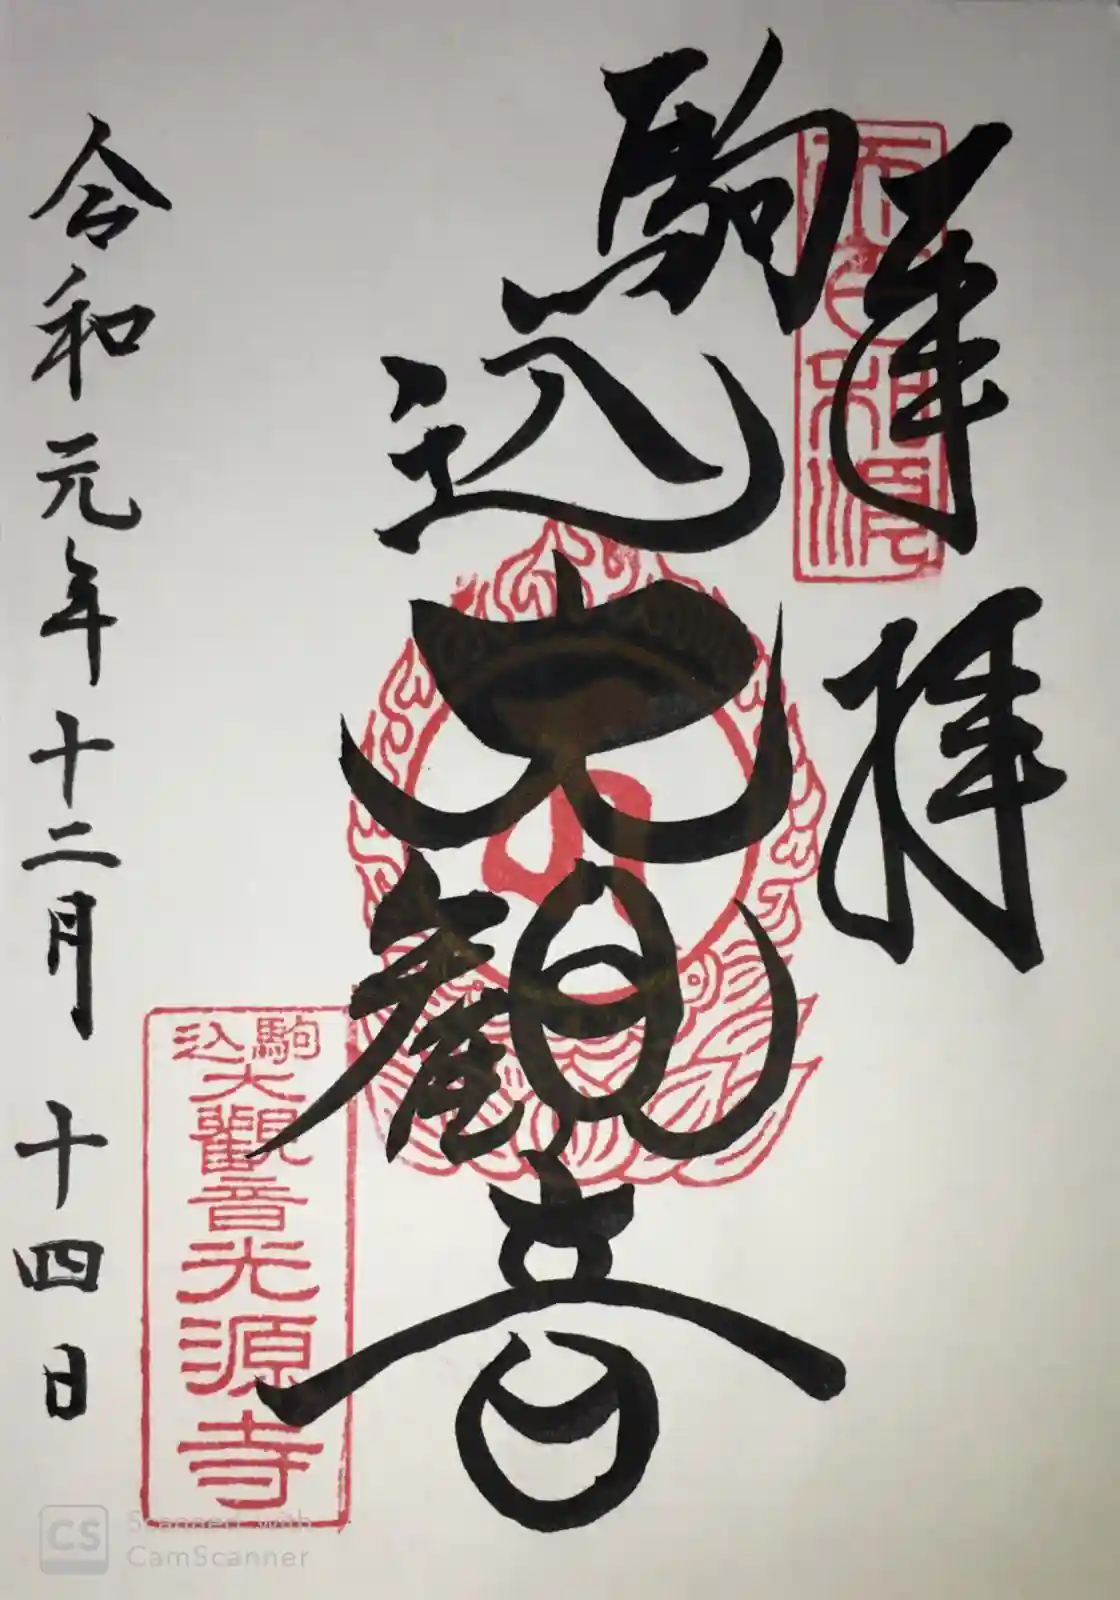 奉拝
駒込大観音
令和元年十二月十四日
駒込大觀音光源寺
CS
Scanned with
CamScanner